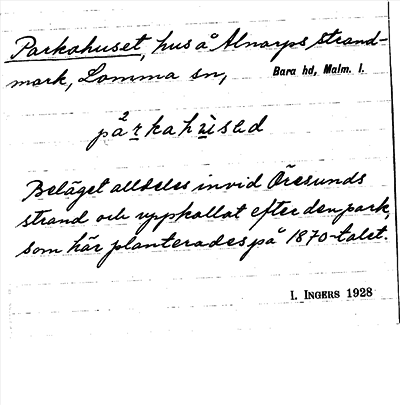 Parkahuset, hus å Alnarps strand-
mark, Lomma sn, Bara hd, Malm. l.
Beläget alldeles invid Öresunds
strand och uppkallat efter den park,
som här planterades på 1870-talet.
I. INGERS 1928